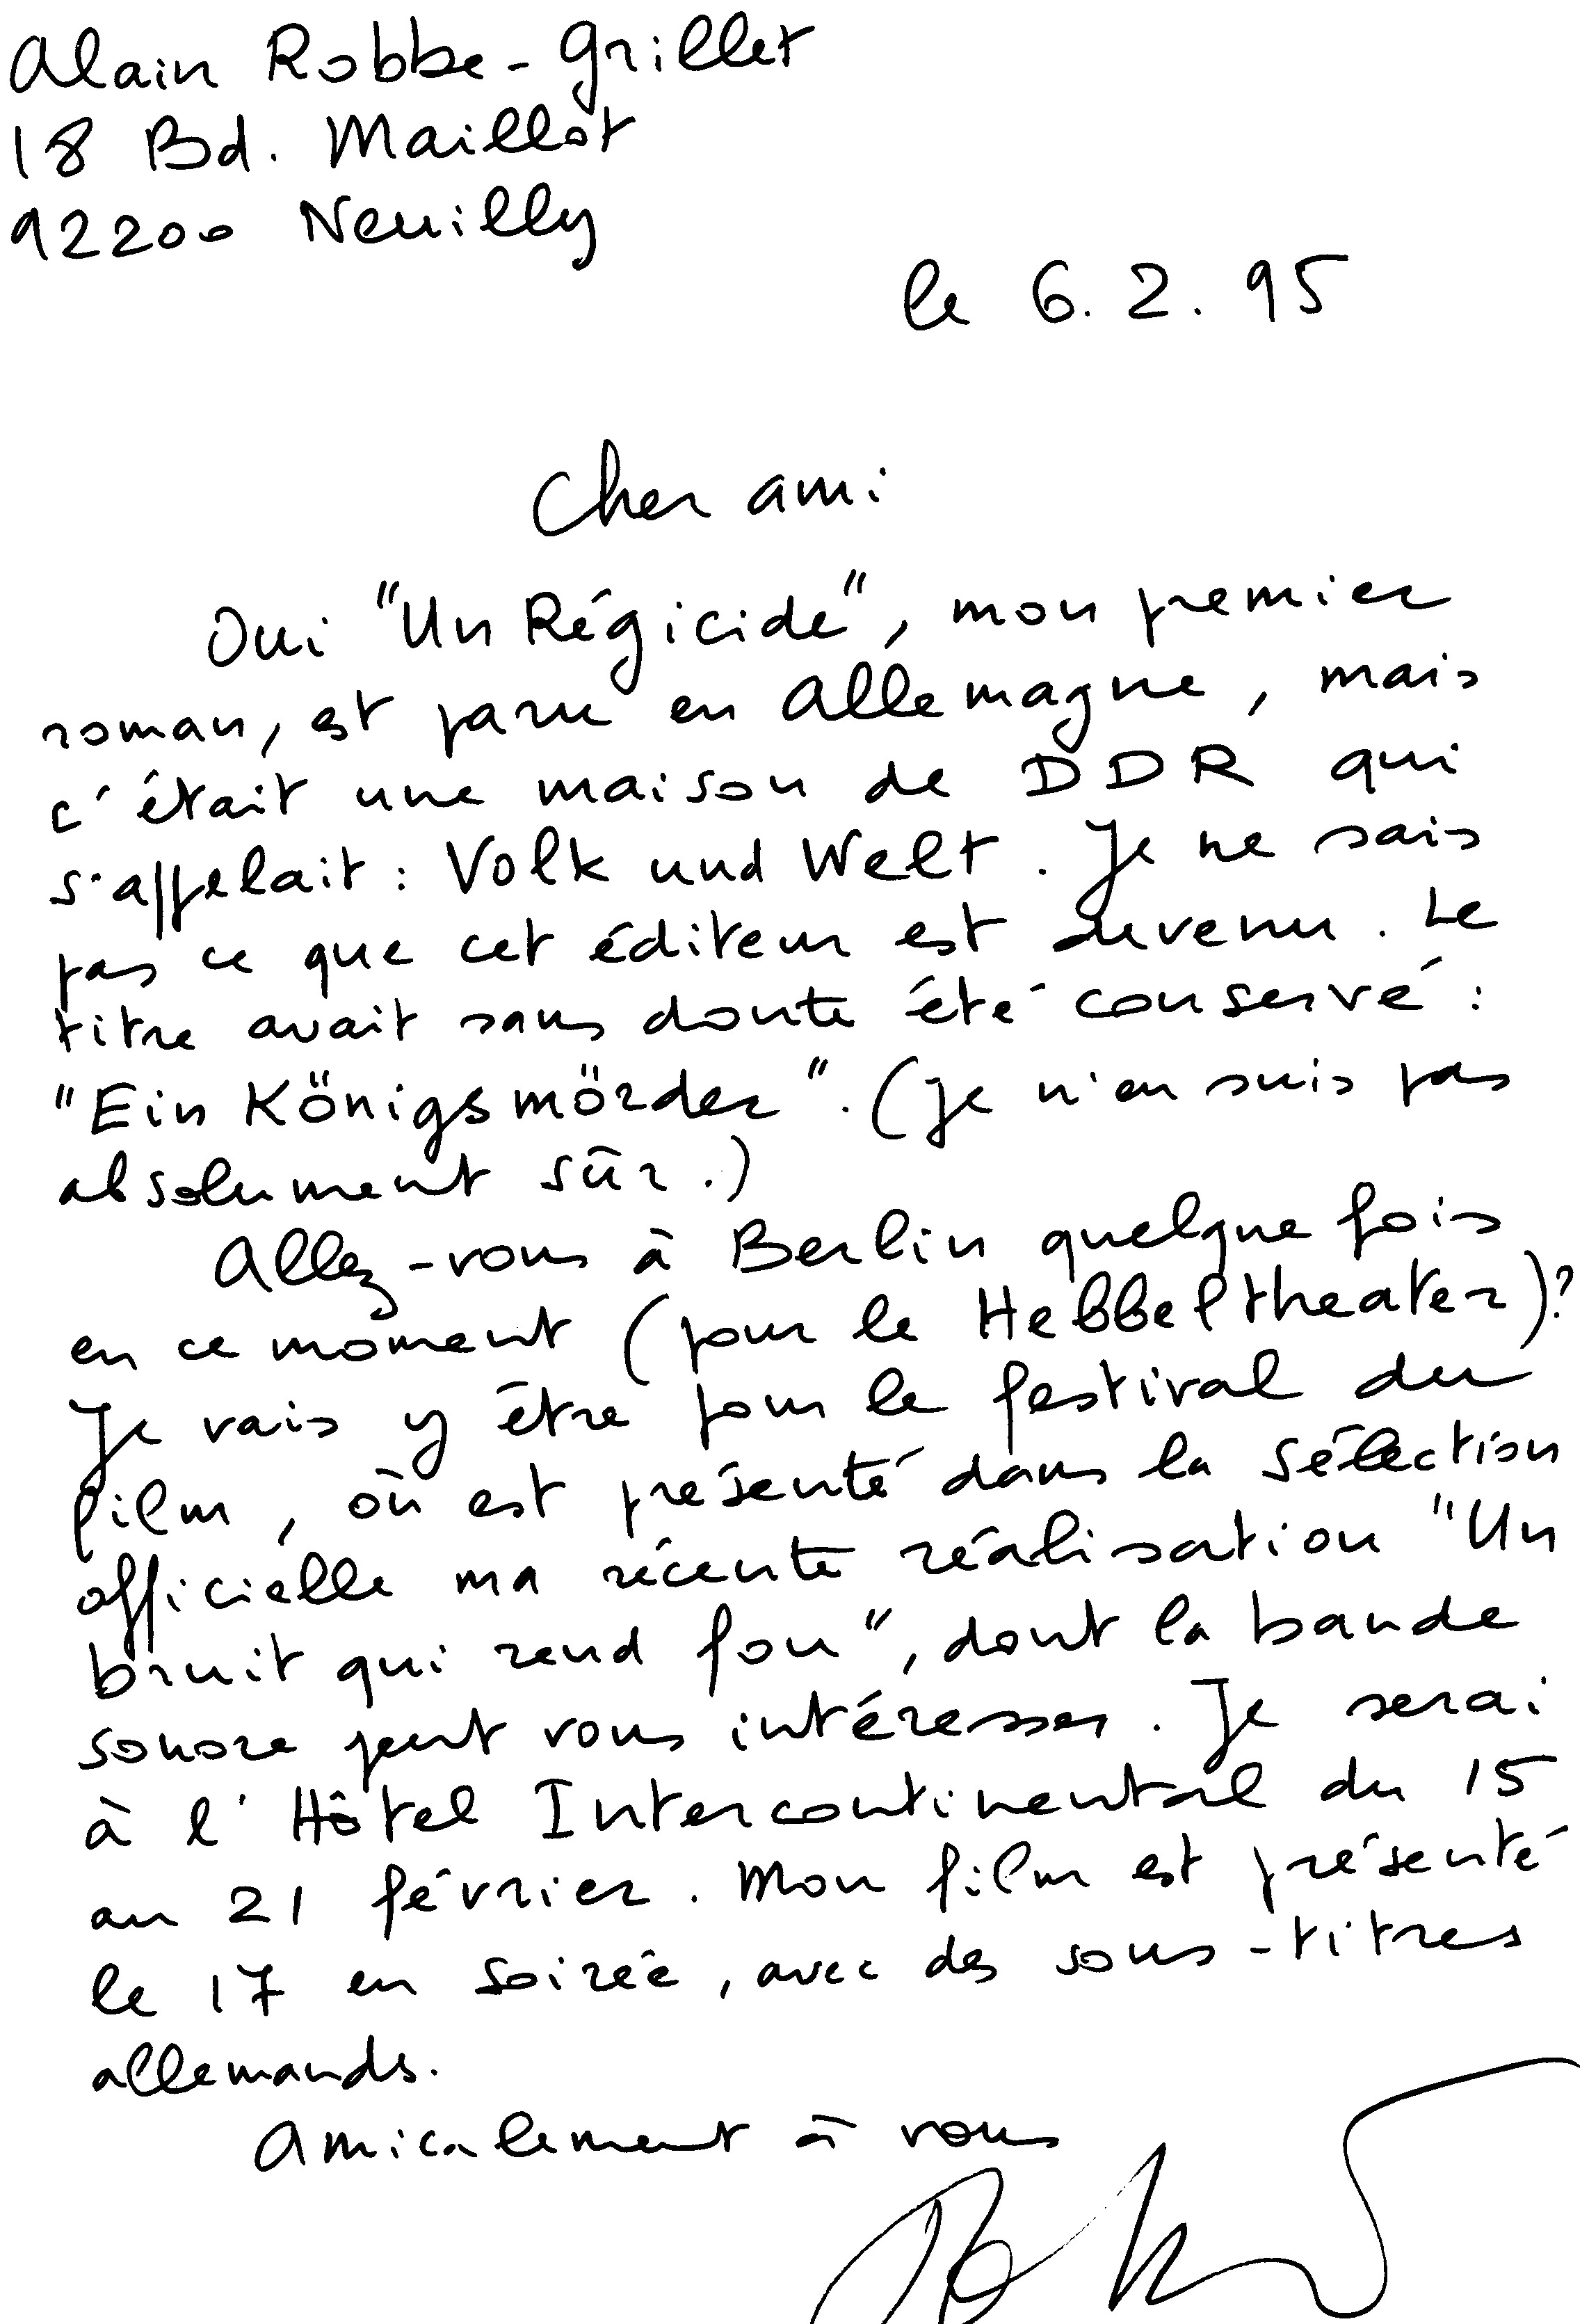 Alain Robbe-Grillet
18 Bd. Maillot
92200 Neuilly
le 6. 2. 95
Cher ami
Oui "Un Régicide", mon premier
roman, est paru en Allemagne, mais
c'était une maison de DDR qui
s'appelait : Volk und Welt. Je ne sais
pas ce que cet éditeur est devenu. Le
titre avait sans doute été conservé :
"Ein Königsmörder". (Je n'en suis pas
absolument sûr.)
Allez-vous à Berlin quelque fois
en ce moment (pour le Hebbeltheater)?
Je vais y être pour le festival du
film, où est présenté dans la sélection
officielle ma récente réalisation "Un
bruit qui rend fou", dont la bande
sonore peut vous intéresser. Je serai
à l'Hôtel Intercontinental du 15
au 21 février. Mon film est présenté
le 17 en soirée, avec des sous-titres
allemands.
Amicalement à vous